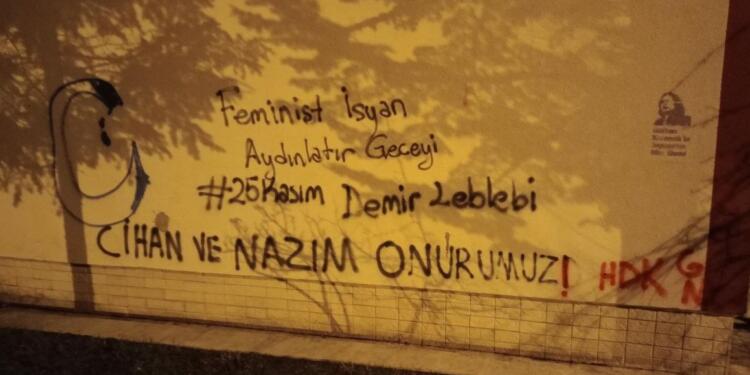 Feminist İsyan
Aydınlatır Geceyi
#25Kasım Demir Leblebi
CİHAN VE NAZIM ONURUMUZ! HDK G
N